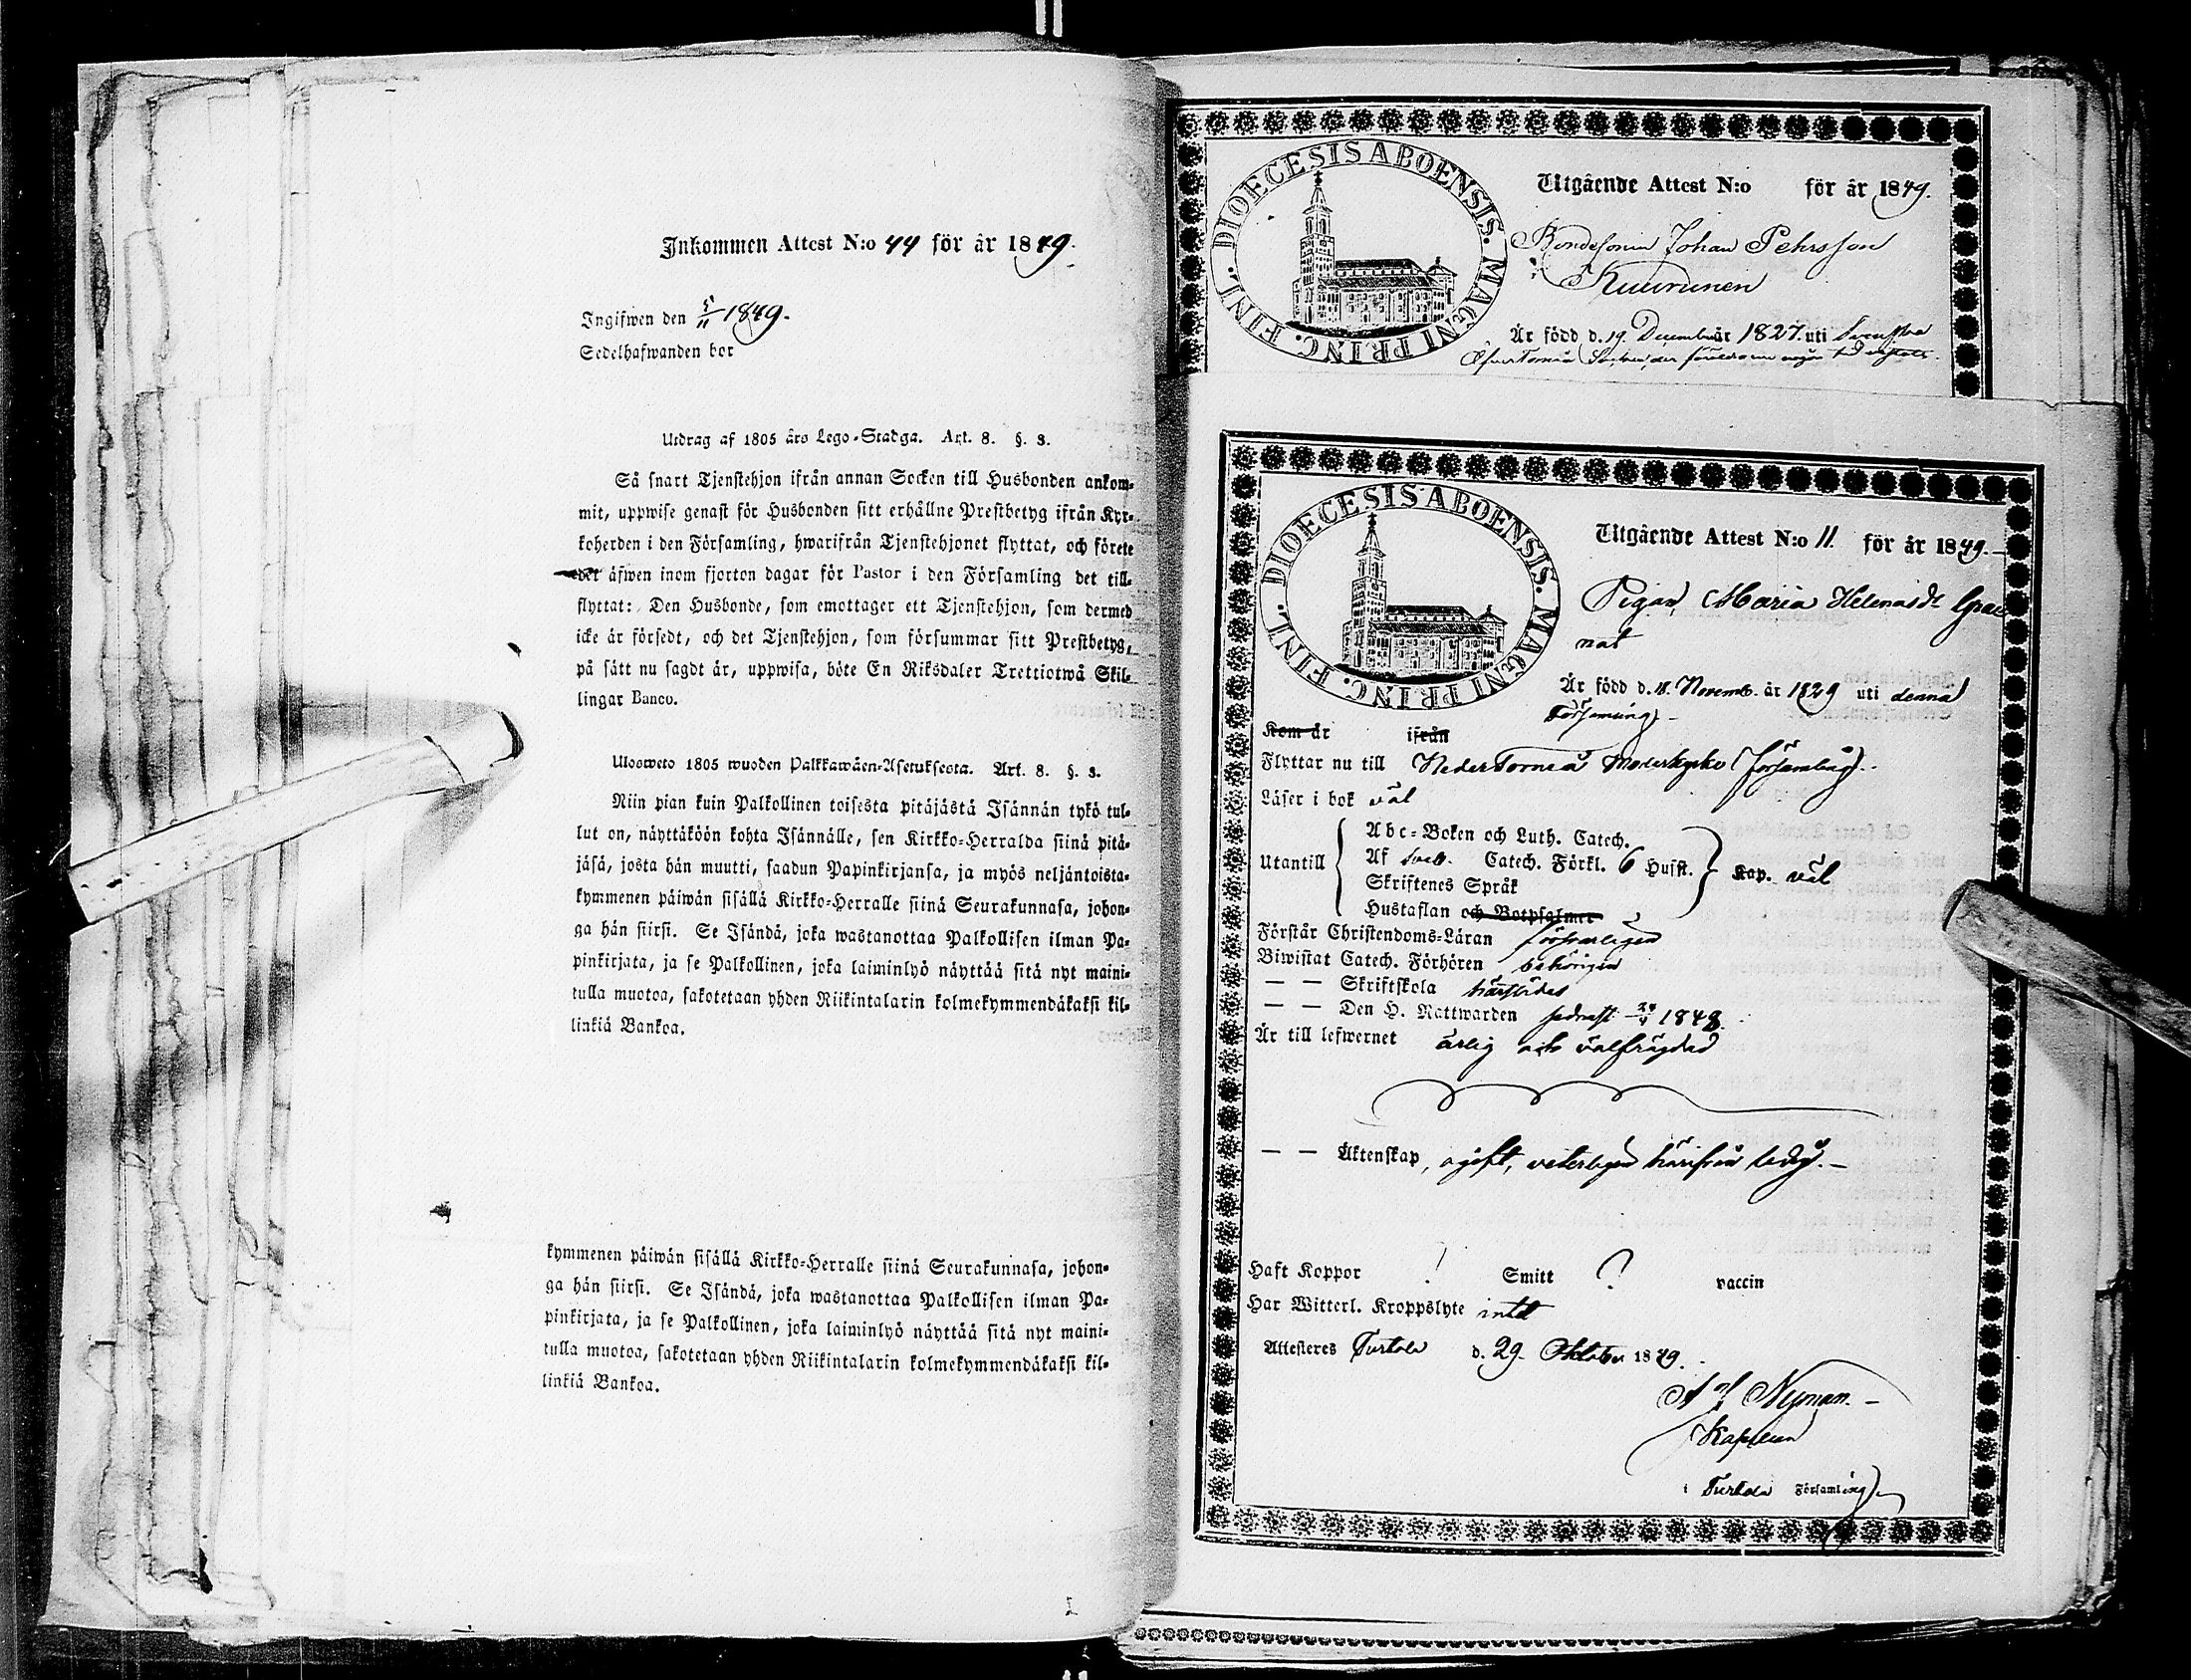 Inkommen Attest N:o 44 för år 1849.
Ingifwen den 5/11 1849.
Sedelhafwanden bor
Utdrag af 1805 års Lego-Stadga. Art. 8. §. 3.
Så snart Tjenstehjon ifrån annan Socken till Husbonden ankom-
mit, uppwise genast för Husbonden sitt erhållne Prestbetyg ifrån Kyr-
koherden i den Församling, hwarifrån Tjenstehjonet flyttat, och förete
det äfwen inom fjorton dagar för Pastor i den Församling det till-
flyttat: Den Husbonde, som emottager ett Tjenstehjon, som dermed
icke är försedt, och det Tjenstehjon, som försummar sitt Prestbetyg,
på sätt nu sagdt är, uppwisa, böte En Riksdaler Trettiotwå Skil-
lingar Banco.
Ulosweto 1805 wuoden Palkkawäen-Asetuksesta. Art. 8. §. 3.
Niin pian kuin Palkollinen toisesta pitäjästä Isännän tykö tul-
lut on, näyttäköön kohta Isännälle, sen Kirkko-Herralda siinä pitä-
jäsä, josta hän muutti, saadun Papinkirjansa, ja myös neljäntoista-
kymmenen päiwän sisällä Kirkko-Herralle siinä Seurakunnasa, johon-
ga hän siirsi. Se Isändä, joka wastanottaa Palkollisen ilman Pa-
pinkirjata, ja se Palkollinen, joka laiminlyö näyttää sitä nyt maini-
tulla muotoa, sakotetaan yhden Riikintalarin kolmekymmendäkaksi kil-
linkiä Bankoa.
kymmenen päiwän sisällä Kirkko-Herralle siinä Seurakunnasa, johon-
ga hän siirsi. Se Isändä, joka wastanottaa Palkollisen ilman Pa-
pinkirjata, ja se Palkollinen, joka laiminlyö näyttää sitä nyt maini-
tulla muotoa, sakotetaan yhden Riikintalarin kolmekymmendäkaksi kil-
linkiä Bankoa.
DIOECESIS ABOENSIS. MAGNI PRINC. FINL.
Utgående Attest N:o för år 1849.
Bondesonen Johan Pehrsson
Kuurunen
Är född d. 19 December år 1827. uti Svenska
Öfver Torneå
DIOECESIS ABOENSIS. MAGNI PRINC. FINL.
Utgående Attest N:o 11. för år 1849.
Pigan, Maria Helena
Är född d. 18. Novemb. år 1829 uti denna
Församling
Kom år ifrån
Flyttar nu till Neder Torneå Moderkyrko församling.
Läser i bok väl
Utantill
Abc-Boken och Luth. Catech.
Af Sveb. Catech. Förkl. 6 Hufst.
Skriftenes Språk
Hustaflan och Botpsalmer
Kap. väl
Förstår Christendoms-Läran försvarligen
Biwistat Catech. Förhören behörigen
— — Skriftskola härstädes
— — Den H. Nattwarden sednast 1848.
Är till lefwernet ärlig och välfrägdad
— — Äktenskap, ogift, veterligen härifrån ledig.
Haft Koppor ! Smitt ? vaccin
Har Witterl. Kroppslyte intet
Attesteres Turtola d. 29. Oktober 1849.
Nyman.
Kapellan
i Turtola Församling